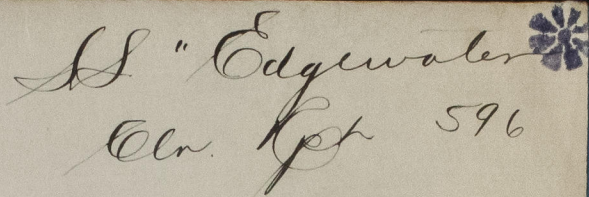 SS "Edgewater
Clr. Cph 596